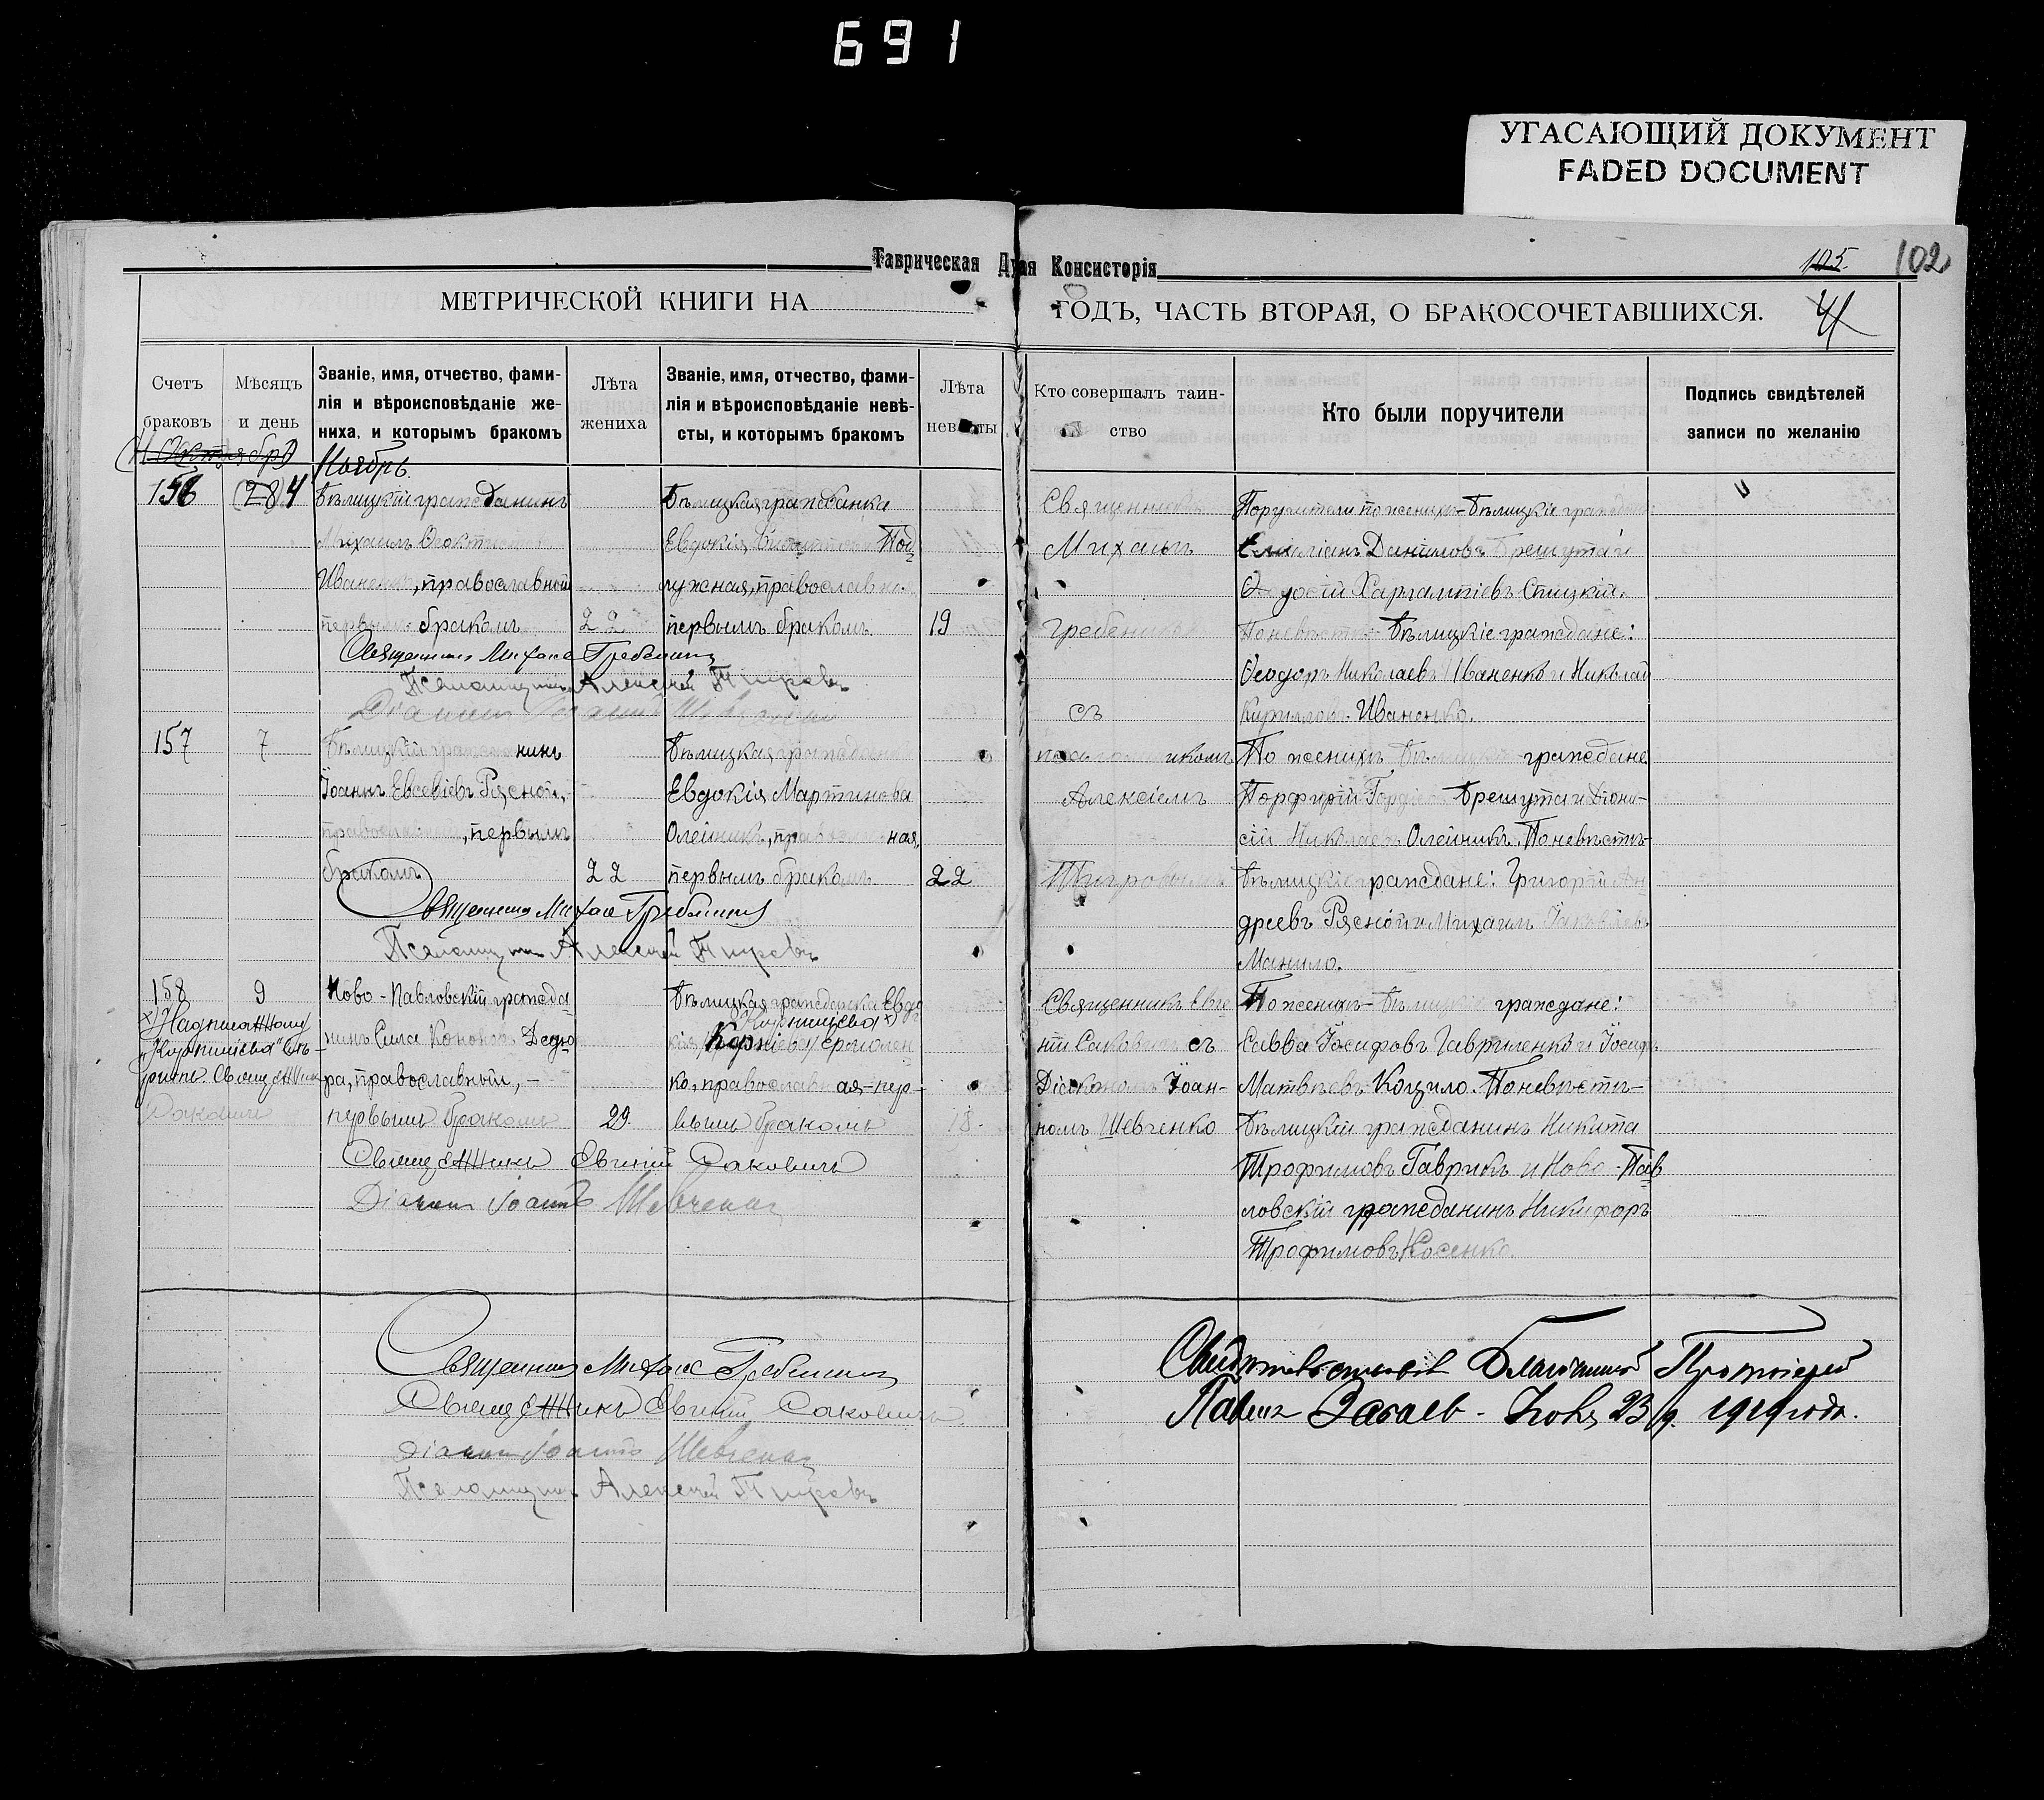 691
УГАСАЮЩИЙ ДОКУМЕНТ
FADED DOCUMENT
Таврическая Дуая Консисторія
105. 102
МЕТРИЧЕСКОЙ КНИГИ НА ГОДЪ, ЧАСТЬ ВТОРАЯ, О БРАКОСОЧЕТАВШИХСЯ.
Счетъ браковъ
Мѣсяцъ и день
Званіе, имя, отчество, фами-
лія и вѣроисповѣданіе же-
ниха, и которымъ бракомъ
Лѣта жениха
Званіе, имя, отчество, фами-
лія и вѣроисповѣданіе невѣ-
сты, и которымъ бракомъ
Лѣта невѣсты
Кто совершалъ таин-
ство
Кто были поручители
Подпись свидѣтелей
записи по желанію
Октябрь
Ноябрь
156
(28) 4
Бѣлицкій гражданинъ
Михаилъ Ѳеоктистовъ
Иваненко, православный
первымъ бракомъ
22
Бѣлицкая гражданка
Евдокія Под-
лужная, православн.
первымъ бракомъ.
19
Священникъ
Михаилъ
Гребенник
съ
Поручители по женихѣ – Бѣлицкіе граждане
Емиліанъ Даниловъ Брешута и
Ѳеодосій Харлампіевъ Спицкій.
По невѣстѣ – Бѣлицкіе граждане:
Ѳеодоръ Николаевъ Иваненко и Николай
Кирилловъ Иваненко.
Священникъ Михаилъ Гребенникъ
Псаломщикъ Алексѣй Тигровъ
Діаконъ Іоаннъ Шевченко
157
7
Бѣлицкій гражданинъ
Іоаннъ Евсевіевъ Рясной,
православный, первымъ
бракомъ
22
Бѣлицкая гражданка
Евдокія Мартинова
Олейникъ, православная,
первымъ бракомъ.
22
псаломщикомъ
Алексіемъ
Тигровымъ
По женихѣ Бѣлицкіе граждане
Порфирій Гордіевъ Брешута и Діони-
сій Николаевъ Олейникъ. По невѣстѣ –
Бѣлицкіе граждане: Григорій Ан
дреевъ Рясной и Михаилъ Іаковлевъ
Манило.
Священникъ Михаилъ Гребенникъ
Псаломщикъ Алексѣй Тигровъ
158
9
Ново-Павловскій гражда
нинъ Сила Кононовъ Дедю
ра, православный, –
первымъ бракомъ
29.
Бѣлицкая гражданка Евдо
кія Корнѣева Ермолен
ко, православная – пер-
вымъ бракомъ
18.
Священникъ Евге
ній Саковичъ съ
Діакономъ Іоан-
номъ Шевченко
По женихѣ – Бѣлицкіе граждане:
Савва Іосифовъ Гавриленко и Іосифъ
Матвѣевъ Коцило. По невѣстѣ –
Бѣлицкій гражданинъ Никита
Трофимовъ Гаврикъ и Ново-Пав
ловскій гражданинъ Никифоръ
Трофимовъ Косенко.
Священникъ
Саковичъ
Священникъ Евгеній Саковичъ
Діаконъ Іоаннъ Шевченко
Священникъ Михаилъ Гребенникъ
Священникъ Евгеній Саковичъ
Діаконъ Іоаннъ Шевченко
Псаломщикъ Алексѣй Тигровъ
Благочинный Протоіерей
Павелъ 23 д. 1919 года.